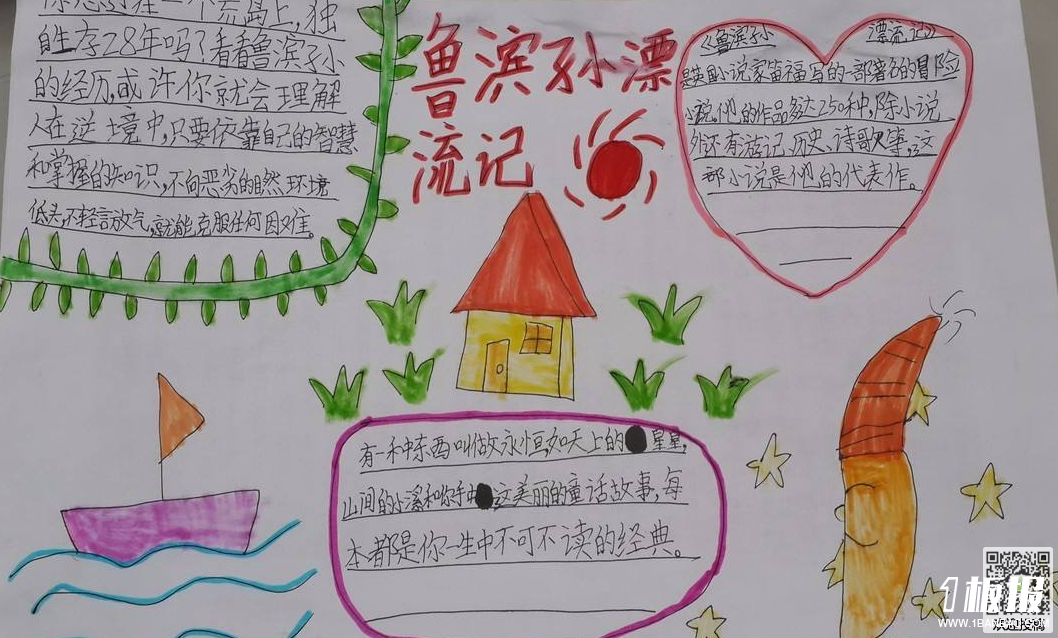 你想到在一个荒岛上，独
自生存28年吗？看看鲁滨孙
的经历，或许你就会理解
人在逆境中，只要依靠自己的智慧
和掌握的知识，不向恶劣的自然环境
低头，不轻言放气，就能克服任何困难。
鲁滨孙漂
流记
《鲁滨孙 漂流记》
是英国小说家笛福写的一部著名的冒险
小说。他的作品多达250种，除小说
外还有游记、历史、诗歌等，这
部小说是他的代表作。
有一种东西叫做永恒，如天上的星星，
山间的小溪和你手中这美丽的童话故事，每
本都是你一生中不可不读的经典。
1板报
WWW.1BANBAO.COM
欢迎投稿